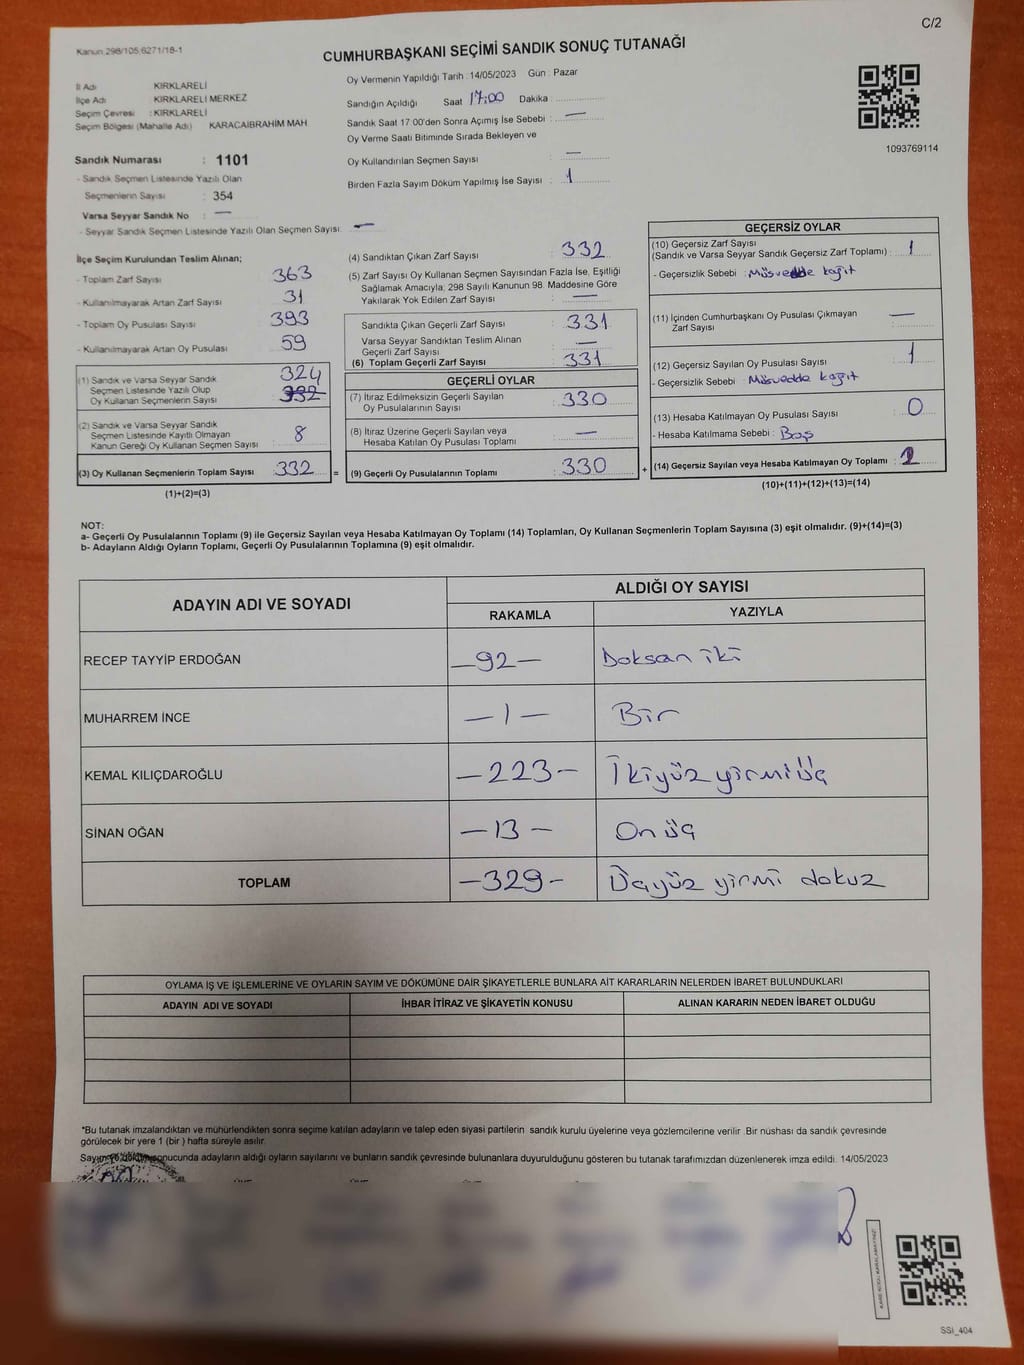 C/2
Kanun 298/105 6271/18-1
CUMHURBAŞKANI SEÇİMİ SANDIK SONUÇ TUTANAĞI
İl Adı KIRKLARELİ
İlçe Adı KIRKLARELİ MERKEZ
Seçim Çevresi : KIRKLARELİ
Seçim Bölgesi (Mahalle Adı) KARACAİBRAHİM MAH
Oy Vermenin Yapıldığı Tarih : 14/05/2023 Gün : Pazar
Sandığın Açıldığı Saat 17:00 Dakika
Sandık Saat 17 00'den Sonra Açımış İse Sebebi : —
Oy Verme Saati Bitiminde Sırada Bekleyen ve
Oy Kullandırılan Seçmen Sayısı —
Birden Fazla Sayım Döküm Yapılmış İse Sayısı : 1
1093769114
Sandık Numarası : 1101
- Sandık Seçmen Listesinde Yazılı Olan
Seçmenlerin Sayısı : 354
Varsa Seyyar Sandık No : —
- Seyyar Sandık Seçmen Listesinde Yazılı Olan Seçmen Sayısı: —
İlçe Seçim Kurulundan Teslim Alınan;
- Toplam Zarf Sayısı 363
- Kullanılmayarak Artan Zarf Sayısı 31
- Toplam Oy Pusulası Sayısı 393
- Kullanılmayarak Artan Oy Pusulası 59
(1) Sandık ve Varsa Seyyar Sandık 324
Seçmen Listesinde Yazılı Olup 332
Oy Kullanan Seçmenlerin Sayısı
(2) Sandık ve Varsa Seyyar Sandık
Seçmen Listesinde Kayıtlı Olmayan 8
Kanun Gereği Oy Kullanan Seçmen Sayısı :
(3) Oy Kullanan Seçmenlerin Toplam Sayısı : 332 =
(1)+(2)=(3)
(4) Sandıktan Çıkan Zarf Sayısı : 332
(5) Zarf Sayısı Oy Kullanan Seçmen Sayısından Fazla İse, Eşitliği
Sağlamak Amacıyla; 298 Sayılı Kanunun 98. Maddesine Göre
Yakılarak Yok Edilen Zarf Sayısı : —
Sandıkta Çıkan Geçerli Zarf Sayısı : 331
Varsa Seyyar Sandıktan Teslim Alınan
Geçerli Zarf Sayısı : —
(6) Toplam Geçerli Zarf Sayısı : 331
GEÇERLİ OYLAR
(7) İtiraz Edilmeksizin Geçerli Sayılan
Oy Pusulalarının Sayısı : 330
(8) İtiraz Üzerine Geçerli Sayılan veya
Hesaba Katılan Oy Pusulası Toplamı : —
(9) Geçerli Oy Pusulalarının Toplamı : 330 +
GEÇERSİZ OYLAR
(10) Geçersiz Zarf Sayısı
(Sandık ve Varsa Seyyar Sandık Geçersiz Zarf Toplamı) : 1
- Geçersizlik Sebebi : Müsvedde kağıt
(11) İçinden Cumhurbaşkanı Oy Pusulası Çıkmayan
Zarf Sayısı : —
(12) Geçersiz Sayılan Oy Pusulası Sayısı : 1
- Geçersizlik Sebebi : Müsvedde kağıt
(13) Hesaba Katılmayan Oy Pusulası Sayısı : 0
- Hesaba Katılmama Sebebi : Boş
(14) Geçersiz Sayılan veya Hesaba Katılmayan Oy Toplamı : 2
(10)+(11)+(12)+(13)=(14)
NOT:
a- Geçerli Oy Pusulalarının Toplamı (9) ile Geçersiz Sayılan veya Hesaba Katılmayan Oy Toplamı (14) Toplamları, Oy Kullanan Seçmenlerin Toplam Sayısına (3) eşit olmalıdır. (9)+(14)=(3)
b- Adayların Aldığı Oyların Toplamı, Geçerli Oy Pusulalarının Toplamına (9) eşit olmalıdır.
ADAYIN ADI VE SOYADI ALDIĞI OY SAYISI
RAKAMLA YAZIYLA
RECEP TAYYİP ERDOĞAN —92— Doksan iki
MUHARREM İNCE —1— Bir
KEMAL KILIÇDAROĞLU —223— İkiyüz yirmi üç
SİNAN OĞAN —13— On üç
TOPLAM —329— Üçyüz yirmi dokuz
OYLAMA İŞ VE İŞLEMLERİNE VE OYLARIN SAYIM VE DÖKÜMÜNE DAİR ŞİKAYETLERLE BUNLARA AİT KARARLARIN NELERDEN İBARET BULUNDUKLARI
ADAYIN ADI VE SOYADI İHBAR İTİRAZ VE ŞİKAYETİN KONUSU ALINAN KARARIN NEDEN İBARET OLDUĞU
*Bu tutanak imzalandıktan ve mühürlendikten sonra seçime katılan adayların ve talep eden siyasi partilerin sandık kurulu üyelerine veya gözlemcilerine verilir .Bir nüshası da sandık çevresinde
görülecek bir yere 1 (bir ) hafta süreyle asılır.
Sayım ve döküm sonucunda adayların aldığı oyların sayılarını ve bunların sandık çevresinde bulunanlara duyurulduğunu gösteren bu tutanak tarafımızdan düzenlenerek imza edildi. 14/05/2023
KARE KODU KARALAMAYINIZ!
SSİ_404